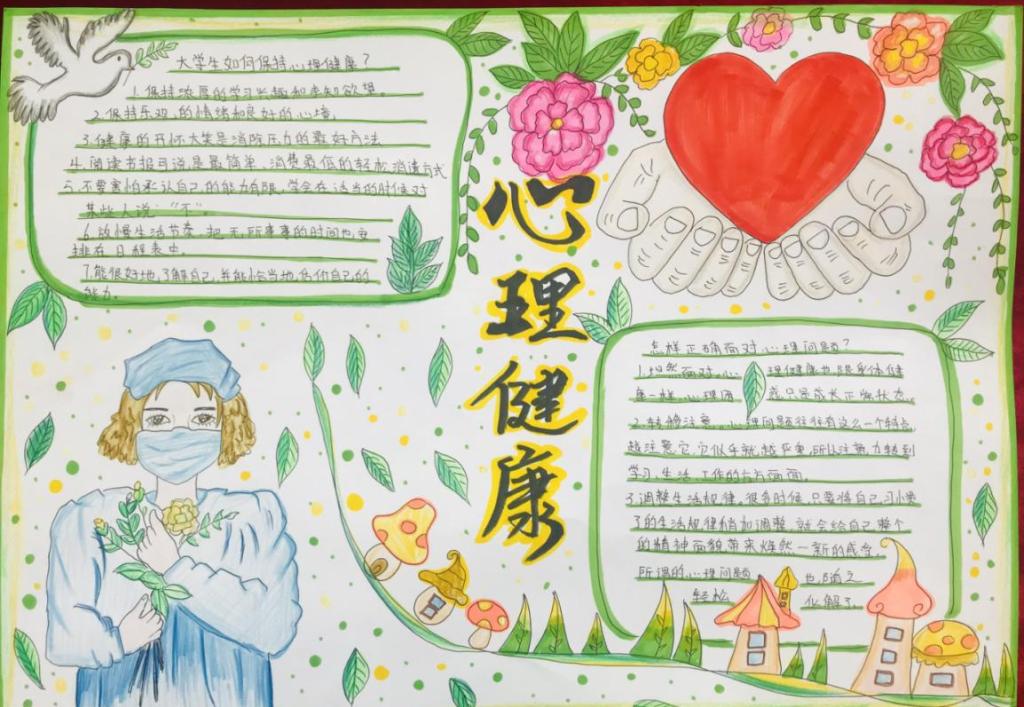 大学生如何保持心理健康？
1.保持浓厚的学习兴趣和求知欲望。
2.保持乐观的情绪和良好的心境。
3.健康的开怀大笑是消除压力的最好方法
4.阅读书报可说是最简单、消费最低的轻松消遣方式
5.不要害怕承认自己的能力有限，学会在适当的时候对
某些人说："不"。
6.放慢生活节奏，把无所事事的时间也安
排在日程表中。
7.能很好地了解自己，并能恰当地估价自己的
能力。
心理健康
怎样正确面对心理问题？
1.坦然面对。心理健康也跟身体健
康一样，心理困惑只是成长正常状态。
2.转移注意。心理问题往往有这么一个特点，
越注意它，它似乎就越严重，所以注意力转到
学习、生活、工作的方方面面。
3.调整生活规律，很多时候，只要将自己习惯
了的生活规律稍加调整，就会给自己整个
的精神面貌带来焕然一新的感受。
所谓的心理问题也随之
轻松化解了